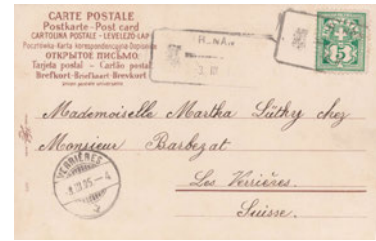 CARTE POSTALE
Postkarte - Post card
CARTOLINA POSTALE - LEVELEZŐ-LAP
ОТКРЫТОЕ ПИСЬМО.
Tarjeta postal - Cartão postal
Brefkort - Briefkaart - Brevkort
Mademoiselle Martha Lüthy chez
Monsieur Barbezat
Les Verrières.
Suisse.
VERRIÈRES
5